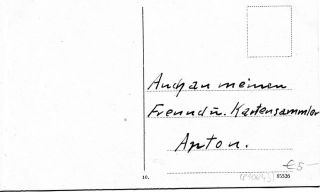 Auch an meinen
Freund u. Kartensammler
Anton.
10.
85526
€5-